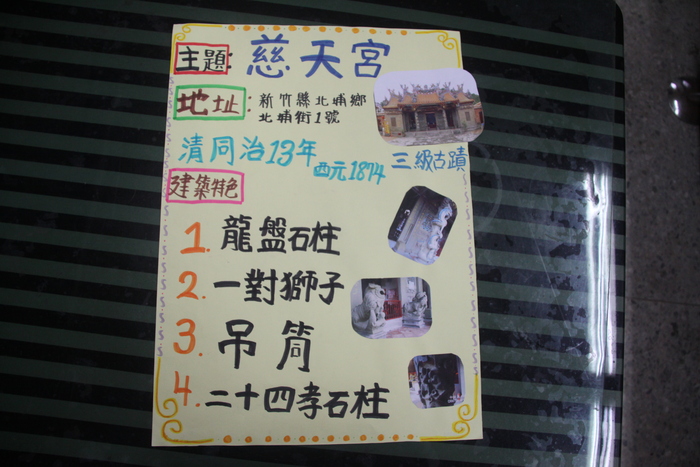 主題：慈天宮
地址：新竹縣北埔鄉
北埔街1號
清同治13年 西元1874 三級古蹟
建築特色
1. 龍盤石柱
2. 一對獅子
3. 吊筒
4. 二十四孝石柱